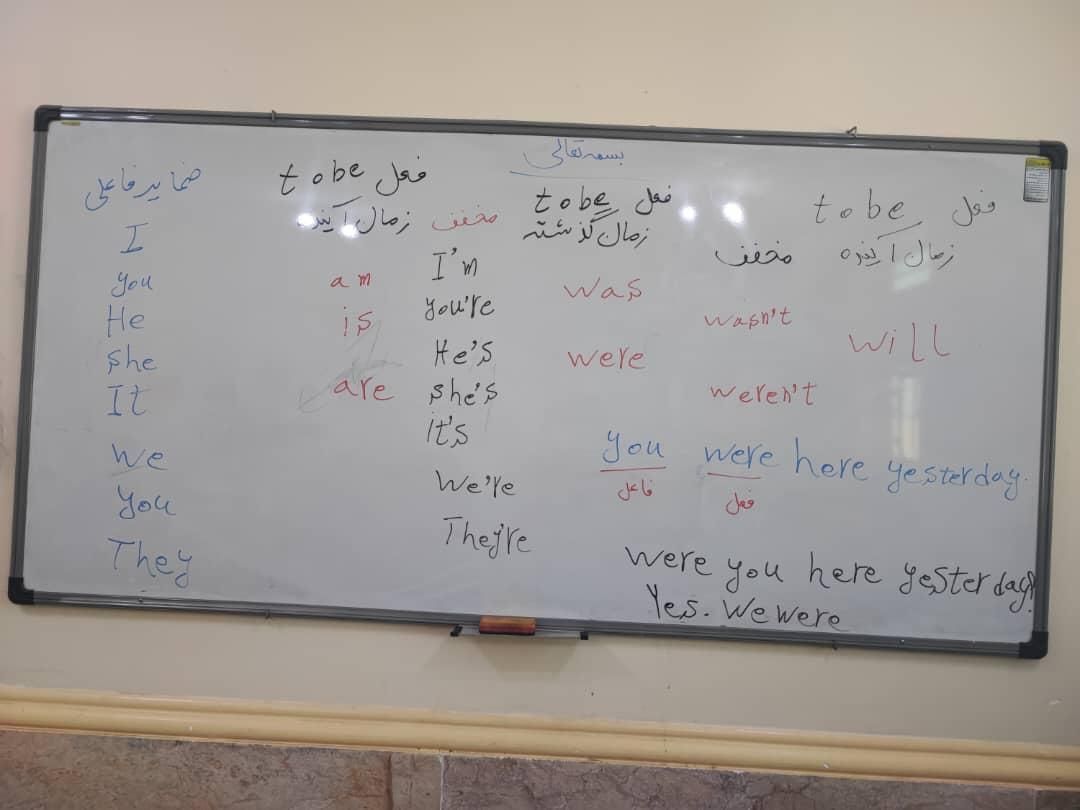 بسمه تعالی
ضمایر فاعلی
I
you
He
she
It
We
you
They
فعل to be
زمان آینده
am
is
are
مخفف
I'm
you're
He's
she's
it's
We're
They're
فعل to be
زمان گذشته
was
were
مخفف
wasn't
weren't
فعل to be
زمان آینده
will
you were here yesterday.
فاعل فعل
were you here yesterday?
Yes. We were